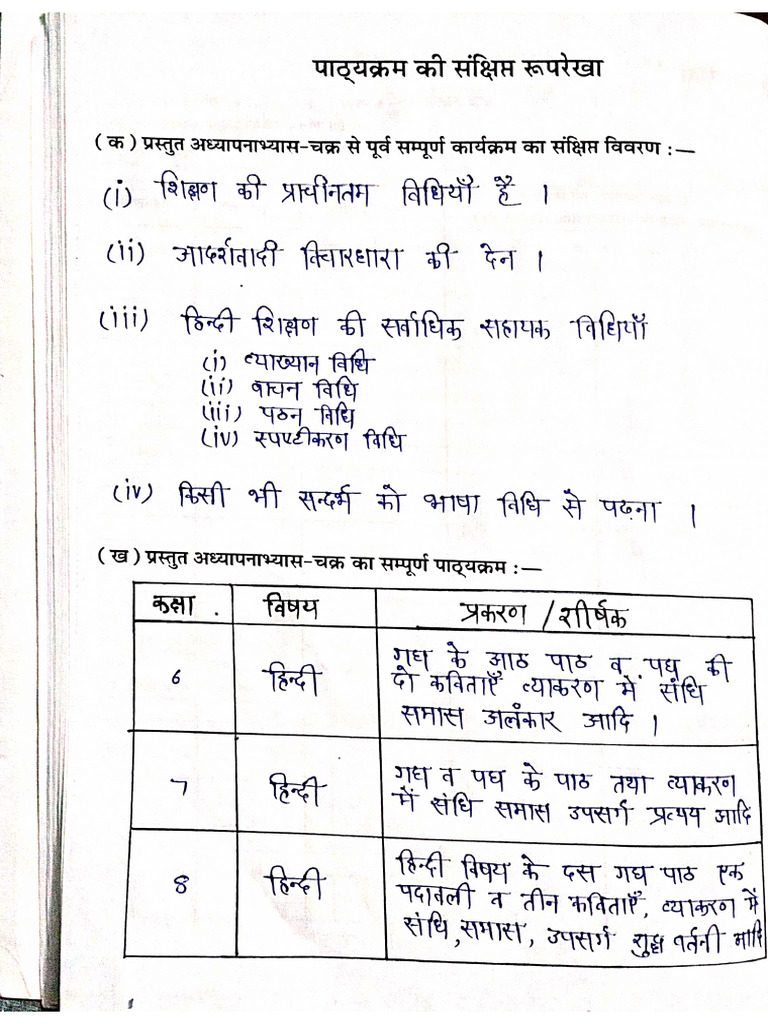 पाठ्यक्रम की संक्षिप्त रूपरेखा
( क ) प्रस्तुत अध्यापनाभ्यास-चक्र से पूर्व सम्पूर्ण कार्यक्रम का संक्षिप्त विवरण :—
(i) शिक्षण की प्राचीनतम विधियाँ है ।
(ii) आदर्शवादी विचारधारा की देन ।
(iii) हिन्दी शिक्षण की सर्वाधिक सहायक विधियाँ
(i) व्याख्यान विधि
(ii) वाचन विधि
(iii) पठन विधि
(iv) स्पष्टीकरण विधि
(iv) किसी भी सन्दर्भ को भाषा विधि से पढ़ना ।
( ख ) प्रस्तुत अध्यापनाभ्यास-चक्र का सम्पूर्ण पाठ्यक्रम :—
कक्षा . विषय प्रकरण / शीर्षक
गद्य के आठ पाठ व पद्य की
6 हिन्दी दो कविताएँ व्याकरण में संधि
समास अलंकार आदि ।
7 हिन्दी गद्य व पद्य के पाठ तथा व्याकरण
में संधि समास उपसर्ग प्रत्यय आदि
हिन्दी विषय के दस गद्य पाठ एक
8 हिन्दी पदावली व तीन कविताएँ, व्याकरण में
संधि, समास, उपसर्ग शुद्ध वर्तनी आदि